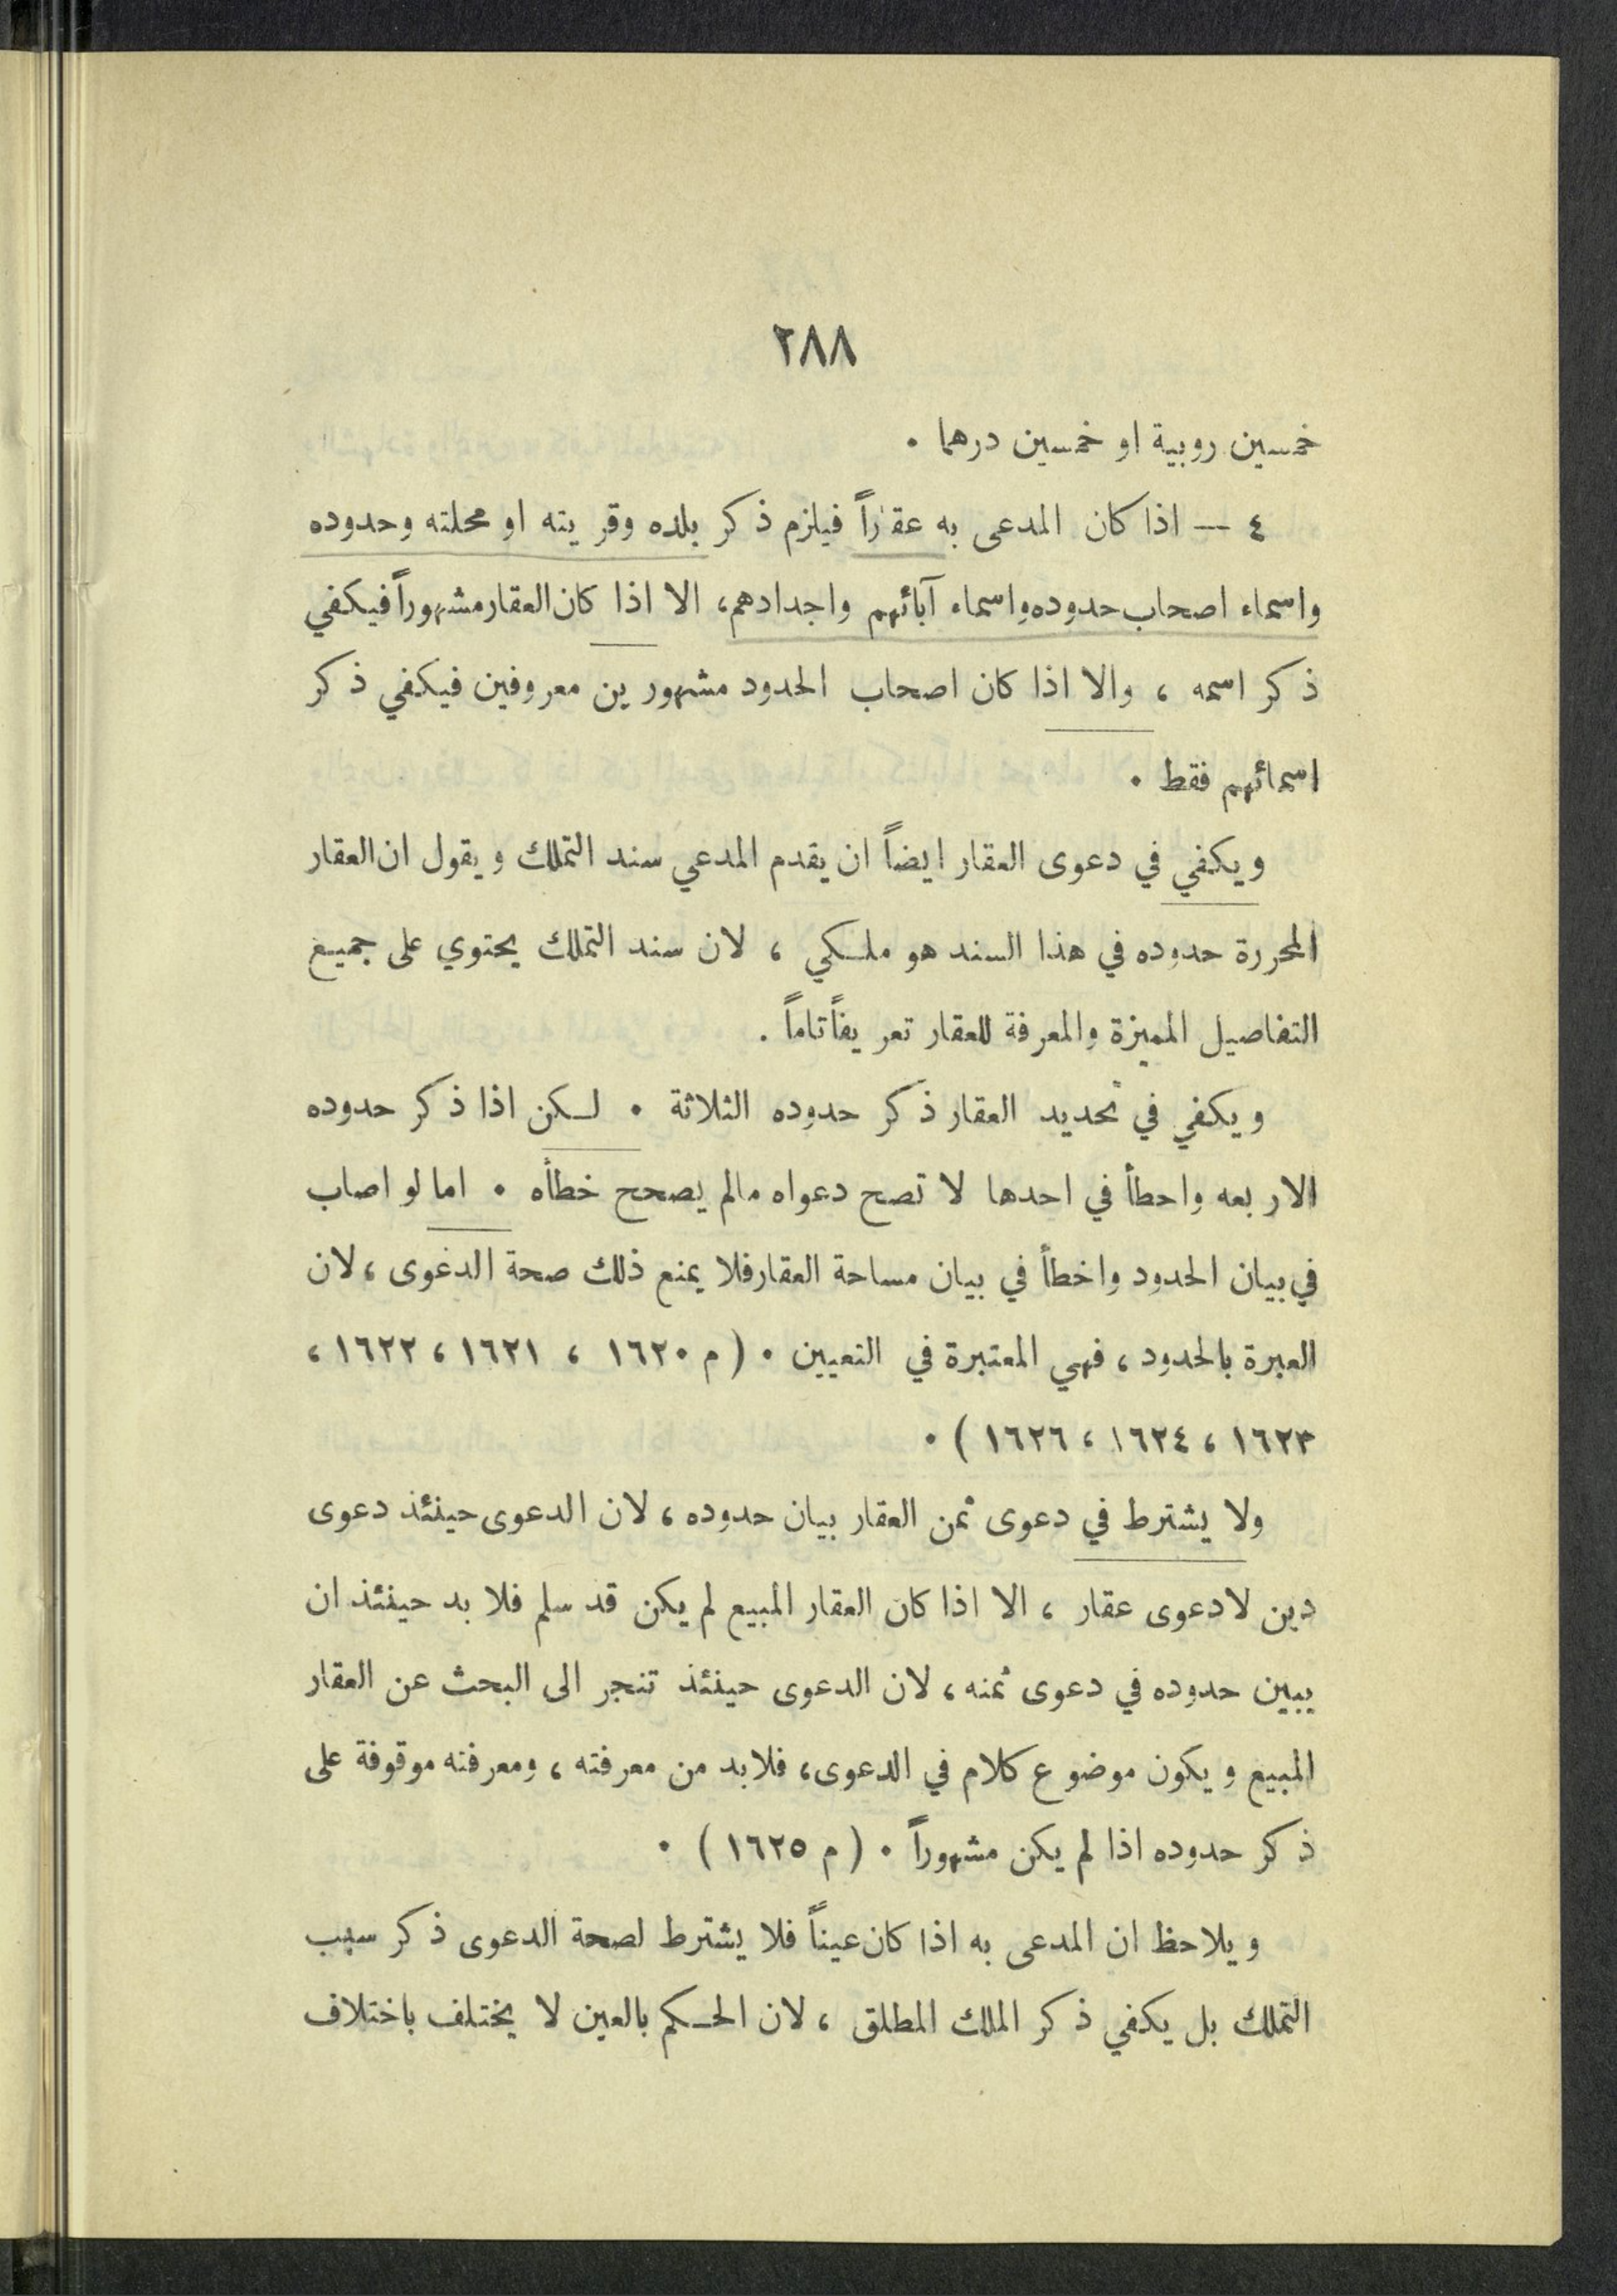 ٢٨٨
خمسين روبية او خمسين درهما .
٤ — اذا كان المدعى به عقاراً فيلزم ذكر بلده وقريته او محلته وحدوده
واسماء اصحاب حدوده واسماء آبائهم واجدادهم، الا اذا كان العقار مشهوراً فيكفي
ذكر اسمه ، والا اذا كان اصحاب الحدود مشهورين معروفين فيكفي ذكر
اسمائهم فقط .
ويكفي في دعوى العقار ايضاً ان يقدم المدعي سند التملك ويقول ان العقار
المحررة حدوده في هذا السند هو ملكي ، لان سند التملك يحتوي على جميع
التفاصيل المميزة والمعرفة للعقار تعريفاً تاماً .
ويكفي في تحديد العقار ذكر حدوده الثلاثة . لكن اذا ذكر حدوده
الاربعه واحطأ في احدها لا تصح دعواه مالم يصحح خطأه . اما لو اصاب
في بيان الحدود واخطأ في بيان مساحة العقار فلا يمنع ذلك صحة الدعوى ، لان
العبرة بالحدود ، فهي المعتبرة في التعيين . (م ١٦٢٠ ، ١٦٢١ ، ١٦٢٢ ،
١٦٢٣ ، ١٦٢٤ ، ١٦٢٦ ) .
ولا يشترط في دعوى ثمن العقار بيان حدوده ، لان الدعوى حينئذ دعوى
دين لا دعوى عقار ، الا اذا كان العقار المبيع لم يكن قد سلم فلا بد حينئذ ان
يبين حدوده في دعوى ثمنه ، لان الدعوى حينئذ تنجر الى البحث عن العقار
المبيع ويكون موضوع كلام في الدعوى، فلا بد من معرفته ، ومعرفته موقوفة على
ذكر حدوده اذا لم يكن مشهوراً . (م ١٦٢٥ ) .
ويلاحظ ان المدعى به اذا كان عيناً فلا يشترط لصحة الدعوى ذكر سبب
التملك بل يكفي ذكر الملك المطلق ، لان الحكم بالعين لا يختلف باختلاف